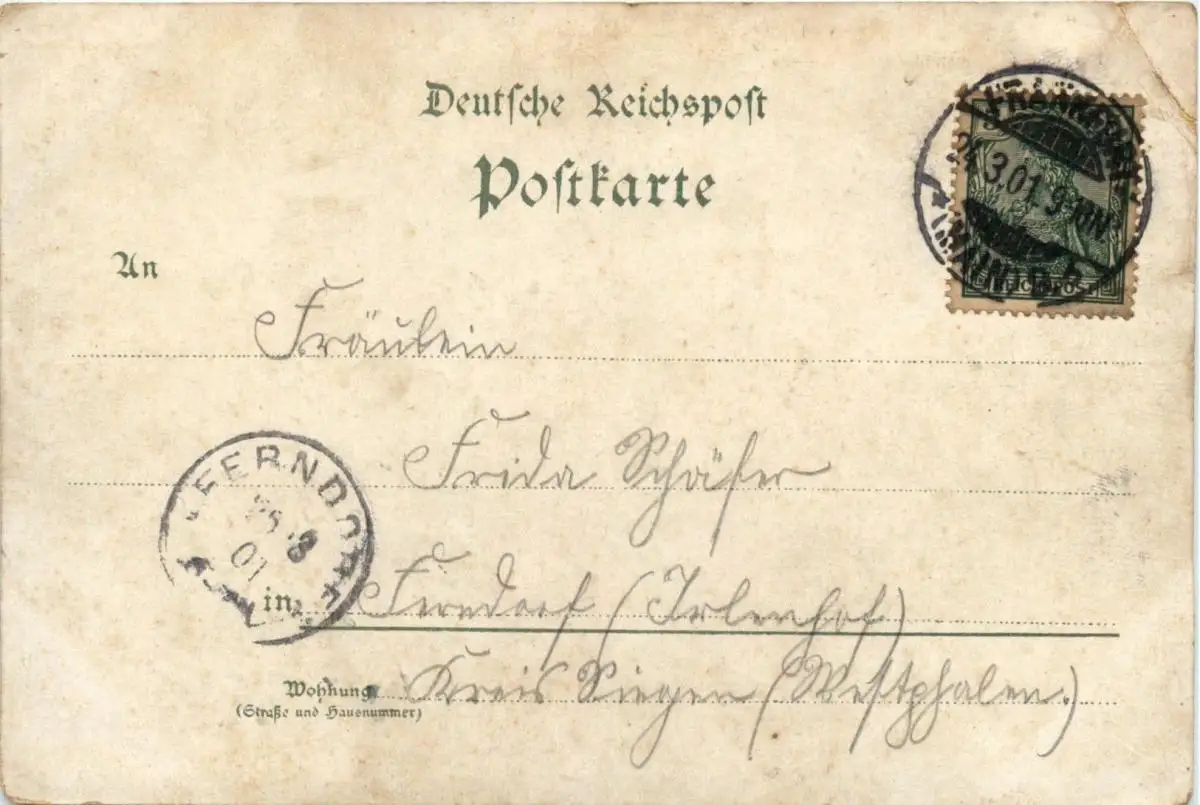 Deutsche Reichspost
Postkarte
An
Fräulein
Frida Schäfer
in Ferndorf (Irlenhof)
Kreis Siegen (Westphalen.)
Wohnung
(Straße und Hausnummer)
FERNDORF
01
3.01. 9-10N.
(MAIN)
REICHSPOST